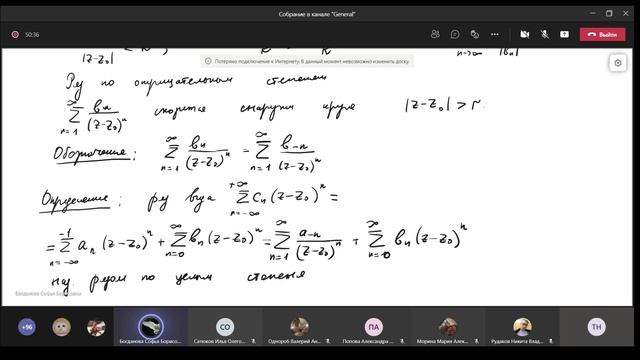 Собрание в канале "General"
50:36
Выйти
|z-z₀| R R n→∞ |bₙ|
Потеряно подключение к Интернету. В данный момент невозможно изменить доску.
Ряд по отрицательным степеням
∑_{n=1}^{∞} bₙ/(z-z₀)ⁿ сходится снаружи круга |z-z₀|>r.
Обозначение: ∑_{n=1}^{∞} bₙ/(z-z₀)ⁿ = ∑_{n=1}^{∞} b₋ₙ/(z-z₀)ⁿ
Определение: ряд вида ∑_{n=-∞}^{+∞} Cₙ(z-z₀)ⁿ =
= ∑_{n=-∞}^{-1} aₙ(z-z₀)ⁿ + ∑_{n=0}^{∞} bₙ(z-z₀)ⁿ = ∑_{n=1}^{∞} a₋ₙ/(z-z₀)ⁿ + ∑_{n=0}^{∞} bₙ(z-z₀)ⁿ
наз. рядом по целым степеня
Богданова Софья Борисовна
+96
СО
ПА
ТН
Богданова Софья Борисо...
Сатюков Илья Олего...
Однороб Валерий Ан...
Попова Александра ...
Морина Мария Алек...
Рудаков Никита Влад...